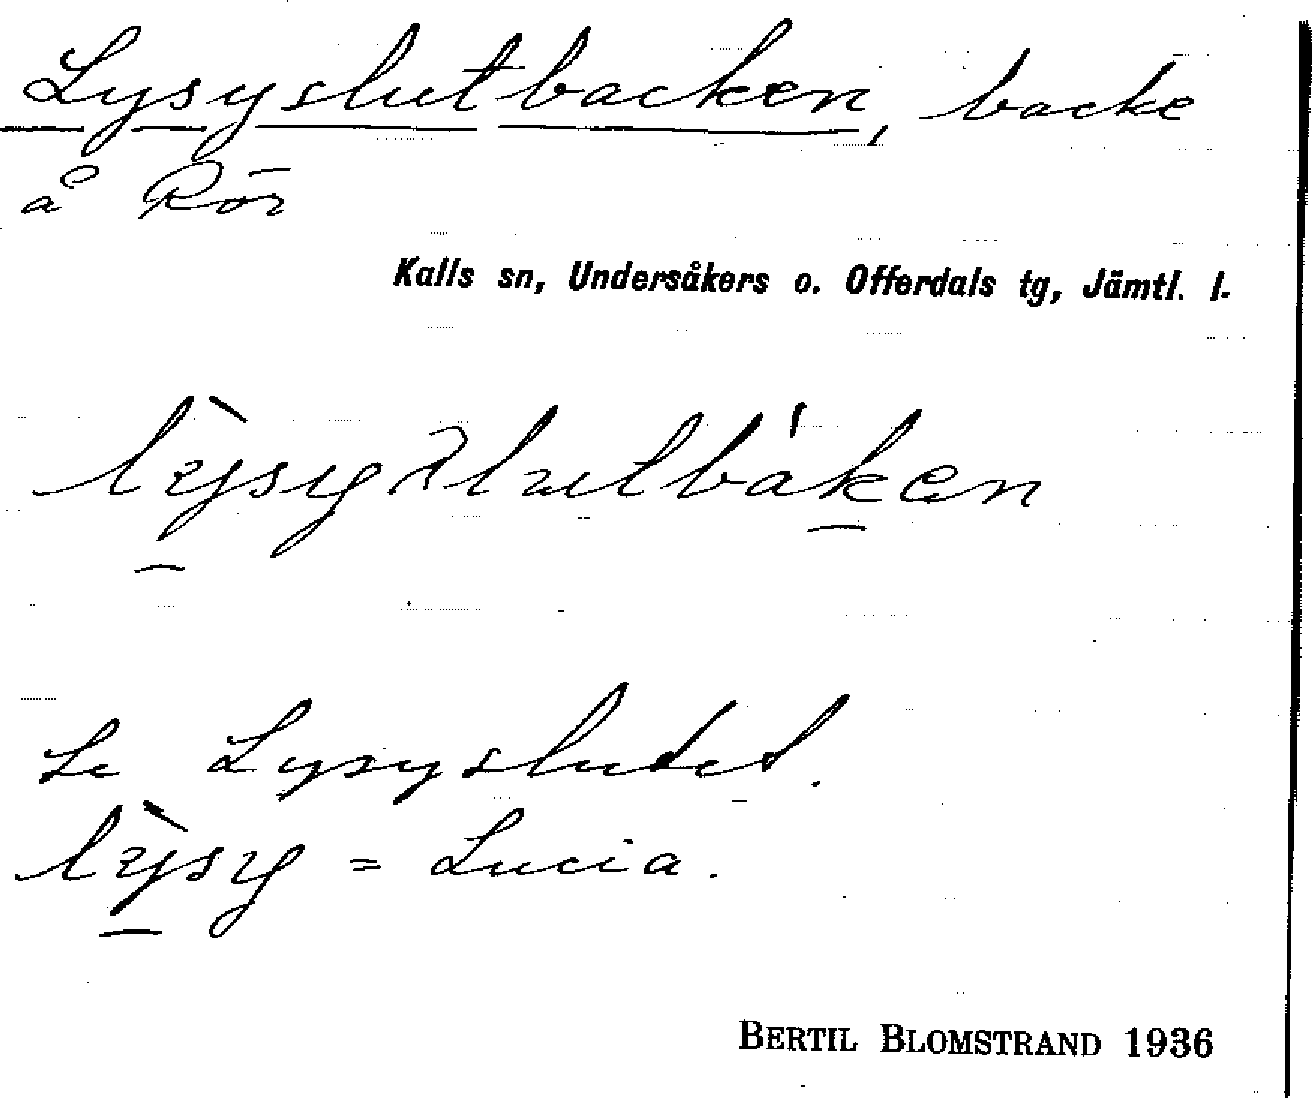 Lysyslutbacken, backe
å Rör
Kalls sn, Undersåkers o. Offerdals tg, Jämtl. l.
lỳsyslutbáken
Se Lysyslutet.
lỳsy = Lucia.
BERTIL BLOMSTRAND 1936